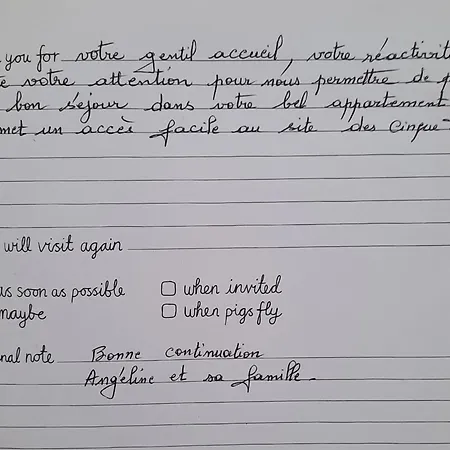 you for votre gentil accueil, votre réactivité
votre attention pour nous permettre de
bon séjour dans votre bel appartement
met un accès facile au site des Cinque
will visit again
as soon as possible ☐ when invited
maybe ☐ when pigs fly
nal note Bonne continuation
Angéline et sa famille